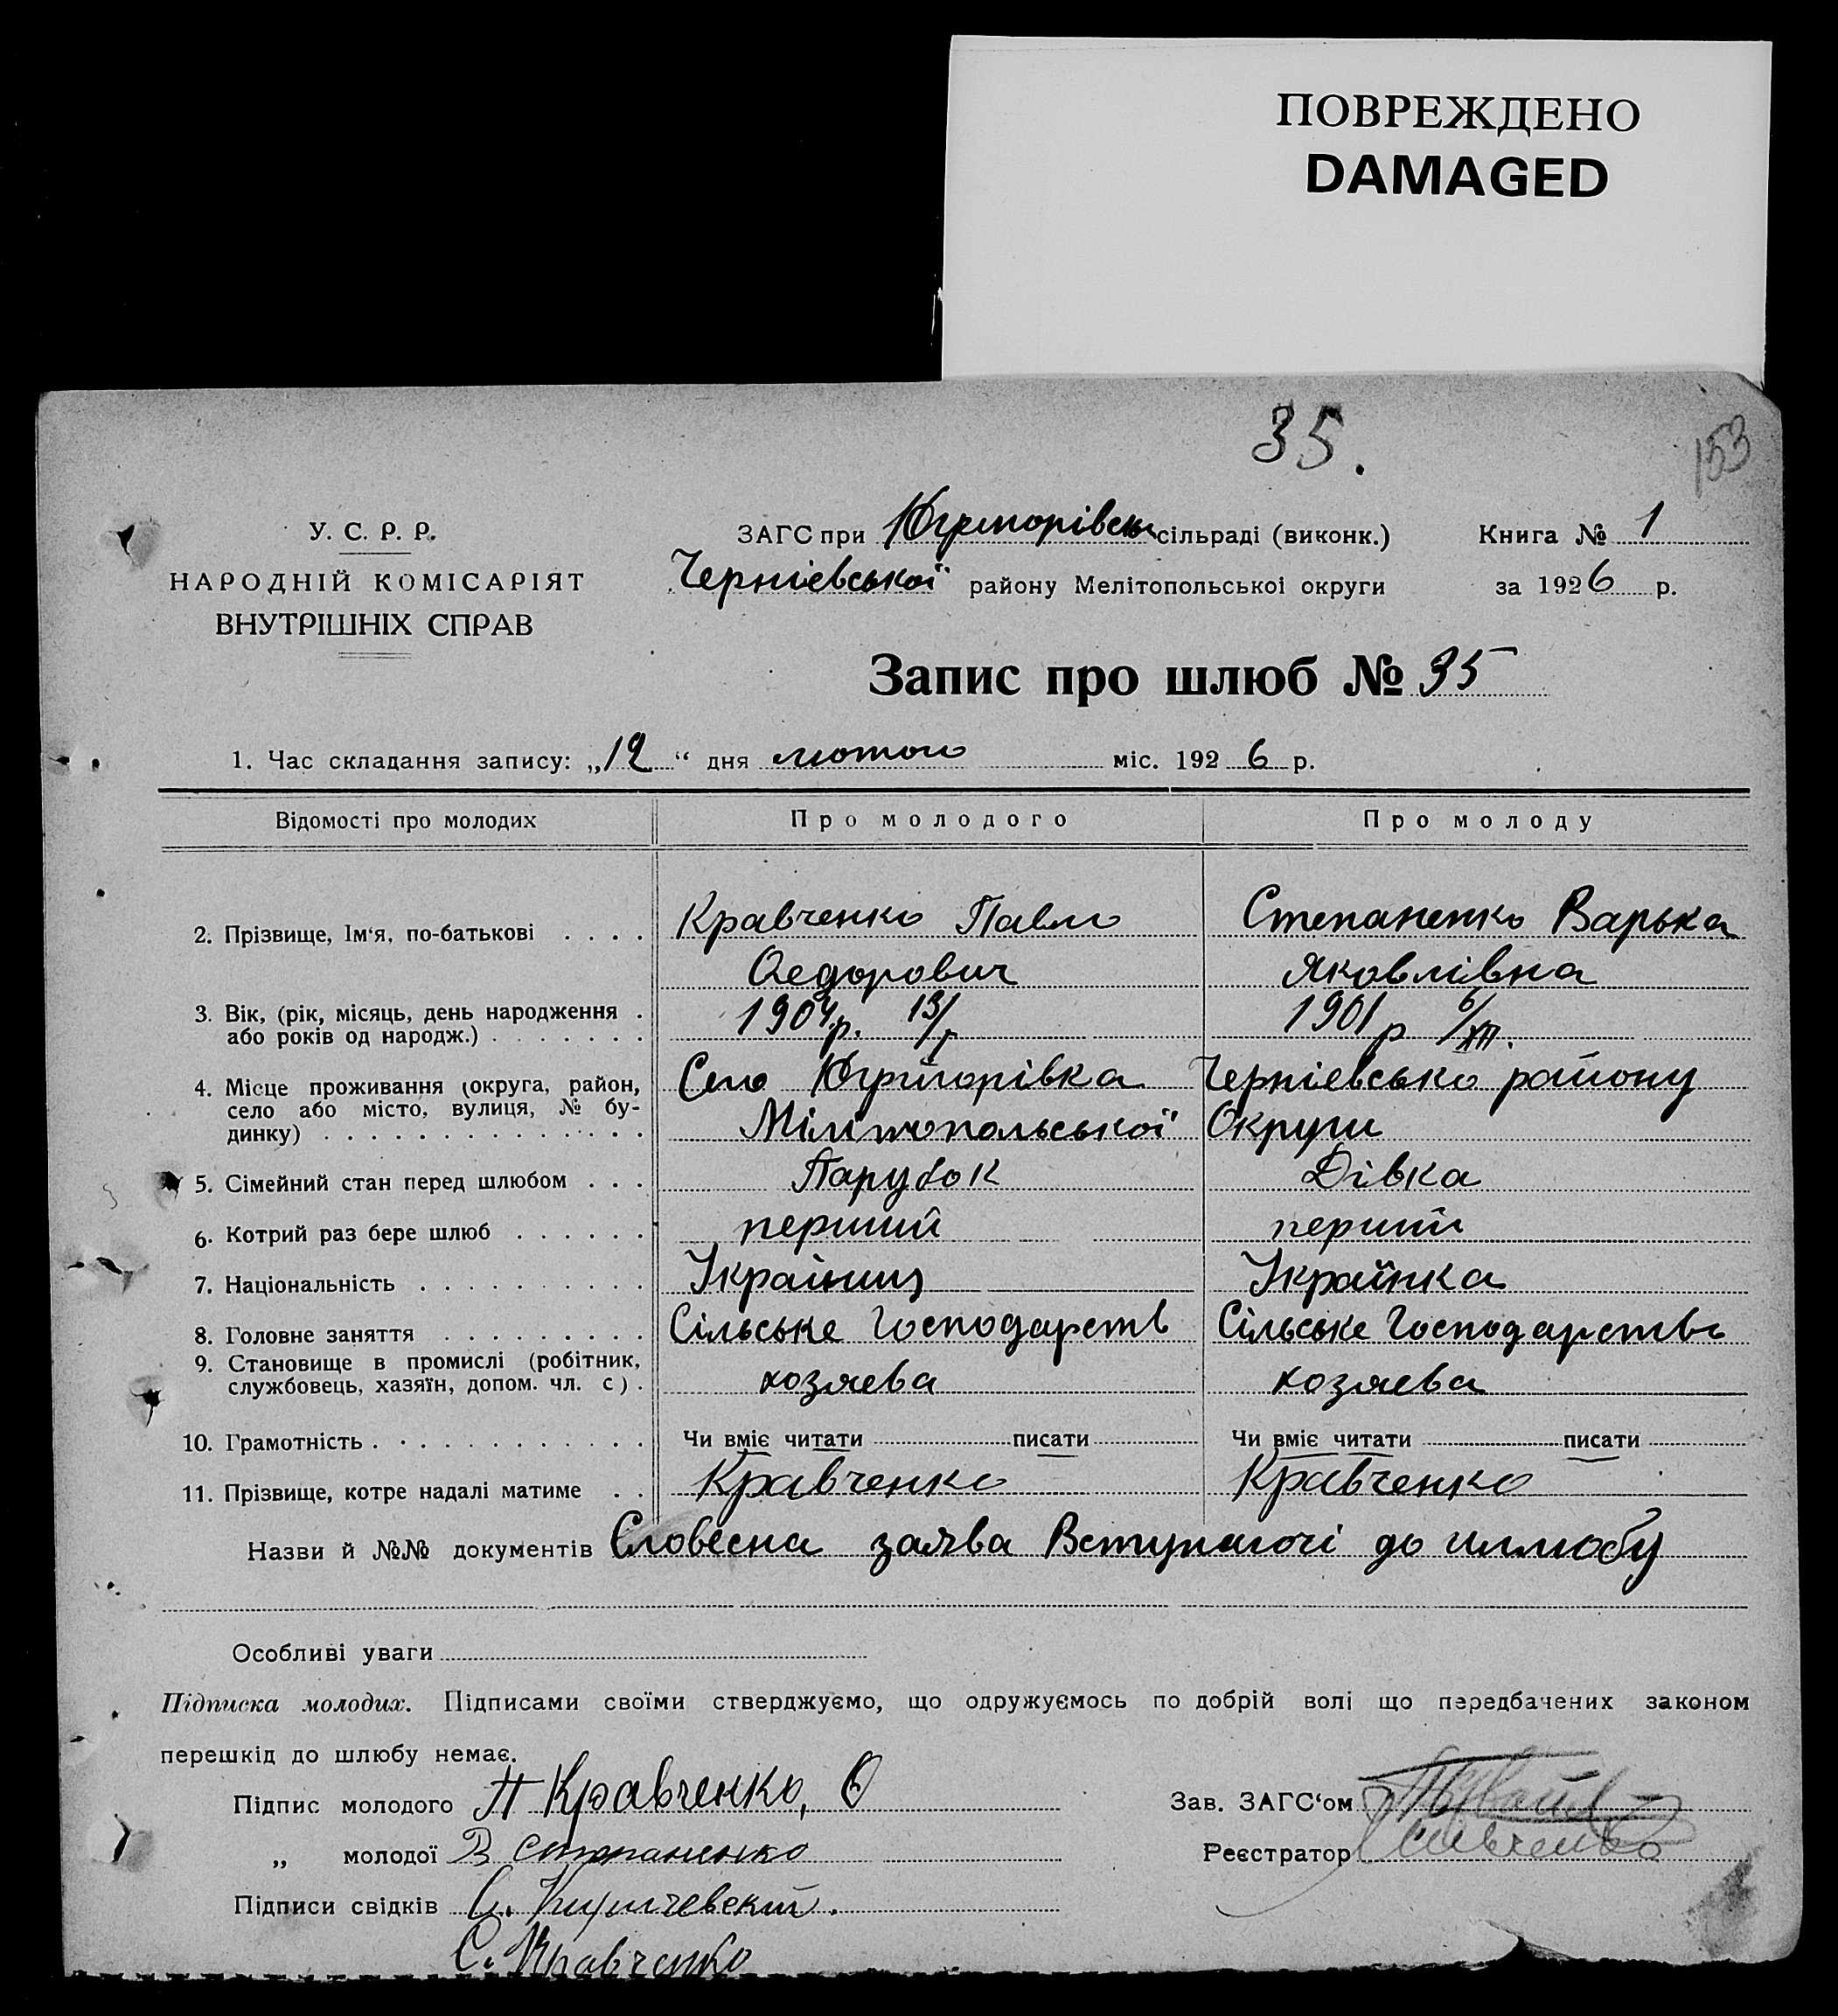 ПОВРЕЖДЕНО
DAMAGED
35.
153
У. С. Р. Р.
НАРОДНІЙ КОМІСАРІЯТ
ВНУТРІШНІХ СПРАВ
ЗАГС при сільраді (виконк.)
Книга № 1
Чернієвської району Мелітопольської округи
за 1926 р.
Запис про шлюб № 35
1. Час складання запису: „12“ дня лютого міс. 1926 р.
Відомості про молодих
Про молодого
Про молоду
2. Прізвище, Ім‘я, по-батькові . . . .
Кравченко Павло
Федорович
Степаненко Варька
Яковлівна
3. Вік, (рік, місяць, день народження .
або років од народж.) . . . . . . .
1904 р. 13/
1901 р 6/XII.
4. Місце проживання (округа, район,
село або місто, вулиця, № бу-
динку) . . . . . . . . . . . . . .
Село Чернієвсько району
Мілітопольської Округи
5. Сімейний стан перед шлюбом . . .
Парубок
Дівка
6. Котрий раз бере шлюб . . . . . .
перший
перший
7. Національність . . . . . . . . . .
Українец
Українка
8. Головне заняття . . . . . . . . .
Сільське Господарств
Сільське Господарство
9. Становище в промислі (робітник,
службовець, хазяїн, допом. чл. с) .
хозяева
хозяева
10. Грамотність . . . . . . . . . . . .
Чи вміє читати писати
Чи вміє читати писати
11. Прізвище, котре надалі матиме . .
Кравченко
Кравченко
Назви й №№ документів Словесна заява Вступаючі до шлюбу
Особливі уваги
Підписка молодих. Підписами своїми стверджуємо, що одружуємось по добрій волі що передбачених законом
перешкід до шлюбу немає.
Підпис молодого П Кравченко, Ф
Зав. ЗАГС‘ом
„ молодої В степаненко
Реєстратор
Підписи свідків С.
С. Кравченко